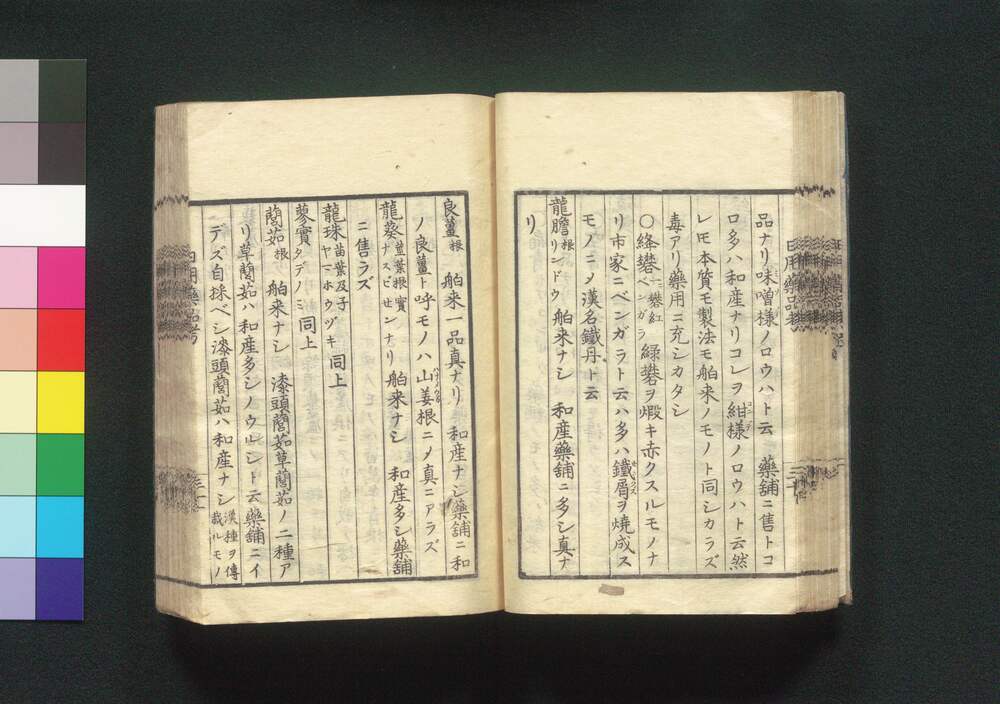 品ナリ味噌様ノロウハト云　藥舗ニ售トコ
ロ多ハ和産ナリコレヲ紺様ノロウハト云然
レモ本質モ製法モ舶来ノモノト同シカラズ
毒アリ藥用ニ充シカタシ
〇絳礬ベンガラ 一礬紅 緑礬ヲ煆キ赤クスルモノナ
リ市家ニベンガラト云ハ多ハ鐵屑ヲ燒成ス
モノニメ漢名鐵丹ト云
龍膽根リンドウ 舶来ナシ　和産藥舗ニ多シ真ナ
リ
良薑根　舶来一品真ナリ　和産ナシ藥舗ニ和
ノ良薑ト呼モノハ山姜根ニメ真ニアラズ
龍葵並葉根實ナスビせンナリ 舶来ナシ　和産多シ藥舗
ニ售ラズ
龍珠苗葉及子ヤマホウヅキ 同上
蓼實タデノミ 同上
䕡茹根　舶来ナシ　漆頭䕡茹草䕡茹ノ二種ア
リ草䕡茹ハ和産多シノウルシト云藥舗ニイ
デズ自採ベシ漆頭䕡茹ハ和産ナシ漢種ヲ傳栽ルモノ
日用藥品考
三十
日用藥品考
三十